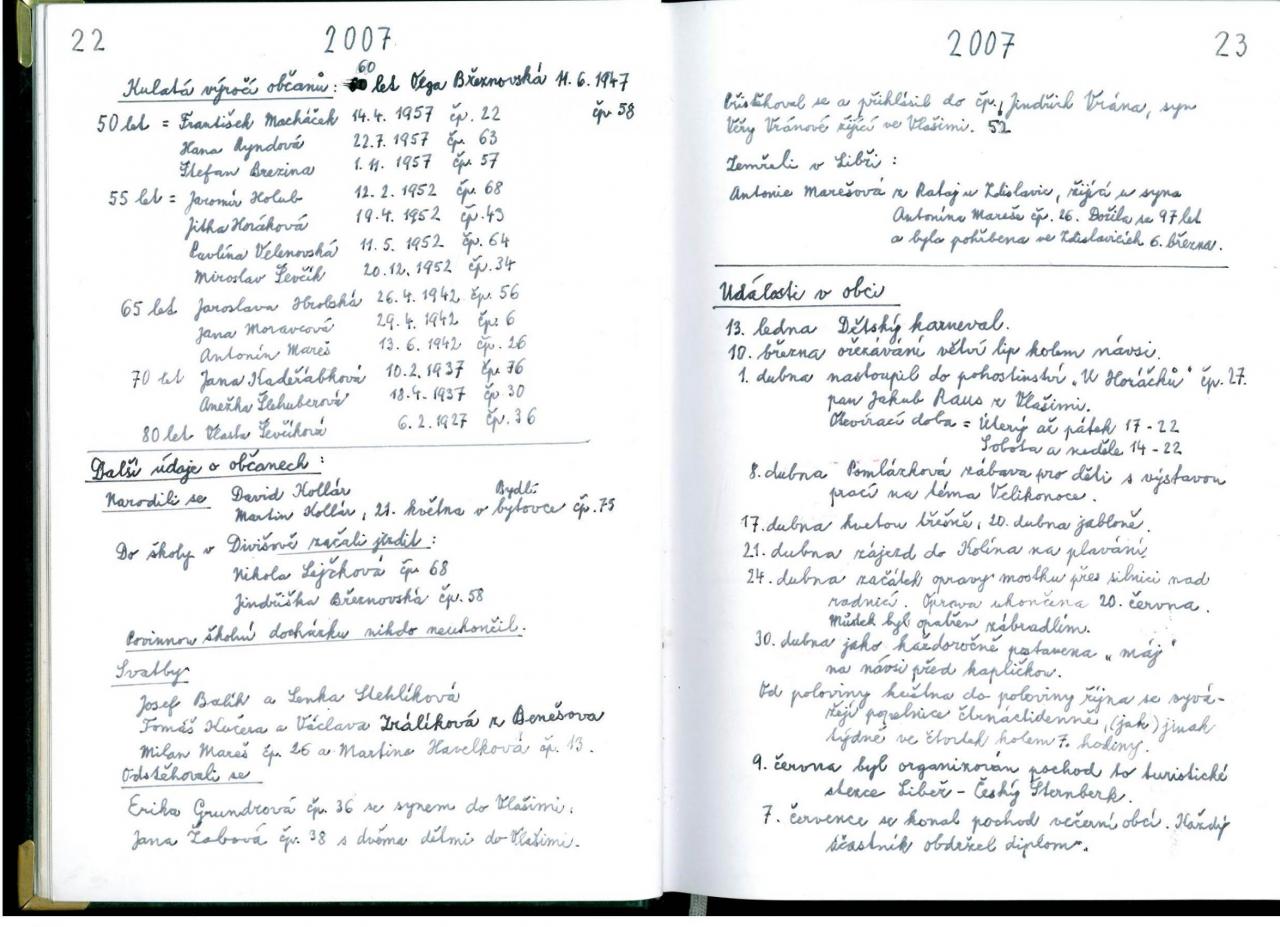 22 2007
Kulatá výročí občanů: 60 let Olga Březnovská 11.6.1947
čp. 58
50 let = František Macháček 14.4. 1957 čp. 22
Hana Ryndová 22.7. 1957 čp. 63
Štefan Brezina 1.11. 1957 čp. 57
55 let = Jaromír Holub 12.2. 1952 čp. 68
Jitka Horáková 19.4. 1952 čp. 43
Pavlína Velenovská 11.5. 1952 čp. 64
Miroslav Ševčík 20.12. 1952 čp. 34
65 let Jaroslava Hrolská 26.4. 1942 čp. 56
Jana Moravcová 29.4. 1942 čp. 6
Antonín Mareš 13.6. 1942 čp. 26
70 let Jana Kadeřábková 10.2. 1937 čp. 76
Anežka 18.4. 1937 čp. 30
80 let Vlasta Ševčíková 6.2. 1927 čp. 36
Další údaje o občanech:
Narodili se David Kollár Bydlí
Martin Kollár, 21. května v bytovce čp. 75
Do školy v Divišově začali jezdit:
Nikola čp. 68
Jindřiška Březnovská čp. 58
Povinnou školní docházku nikdo neukončil.
Svatby
Josef Balík a Lenka Stehlíková
Tomáš Kučera a Václava Králíková z Benešova
Milan Mareš čp. 26 a Martina Havelková čp. 13.
Odstěhovali se
Erika Grundzová čp. 36 se synem do Vlašimi.
Jana Žabová čp. 38 s dvěma dětmi do Vlašimi.
2007 23
Přistěhoval se a přihlásil do čp. Jindřich Vrána, syn
Věry Vránové žijící ve Vlašimi. 52
Zemřeli v Libři:
Antonie Marešová z Rataj u Zdislavic, žijící u syna
Antonína Mareše čp. 26. Dožila se 97 let
a byla pohřbena ve Zdislavicích 6. března.
Události v obci
13. ledna Dětský karneval.
10. března ořezávání větví lip kolem návsi.
1. dubna nastoupil do pohostinství „U Horáčků" čp. 27.
pan Jakub Raus z Vlašimi.
Otevírací doba = Úterý až pátek 17-22
Sobota a neděle 14-22
8. dubna Pomlázková zábava pro děti s výstavou
prací na téma Velikonoce.
17. dubna kvetou třešně, 20. dubna jabloně.
21. dubna zájezd do Kolína na plavání
24. dubna začátek opravy mostku přes silnici nad
radnicí. Oprava ukončena 20. června.
Můstek byl opatřen zábradlím.
30. dubna jako každoročně postavena „máj"
na návsi před kapličkou.
Od poloviny května do poloviny října se vyvá-
žejí popelnice čtrnáctidenně, (jak) jinak
týdně ve čtvrtek kolem 7. hodiny.
9. června byl organizován pochod to turistické
stezce Libež - Český Šternberk.
7. července se konal pochod večerní obcí. Každý
účastník obdržel diplom.